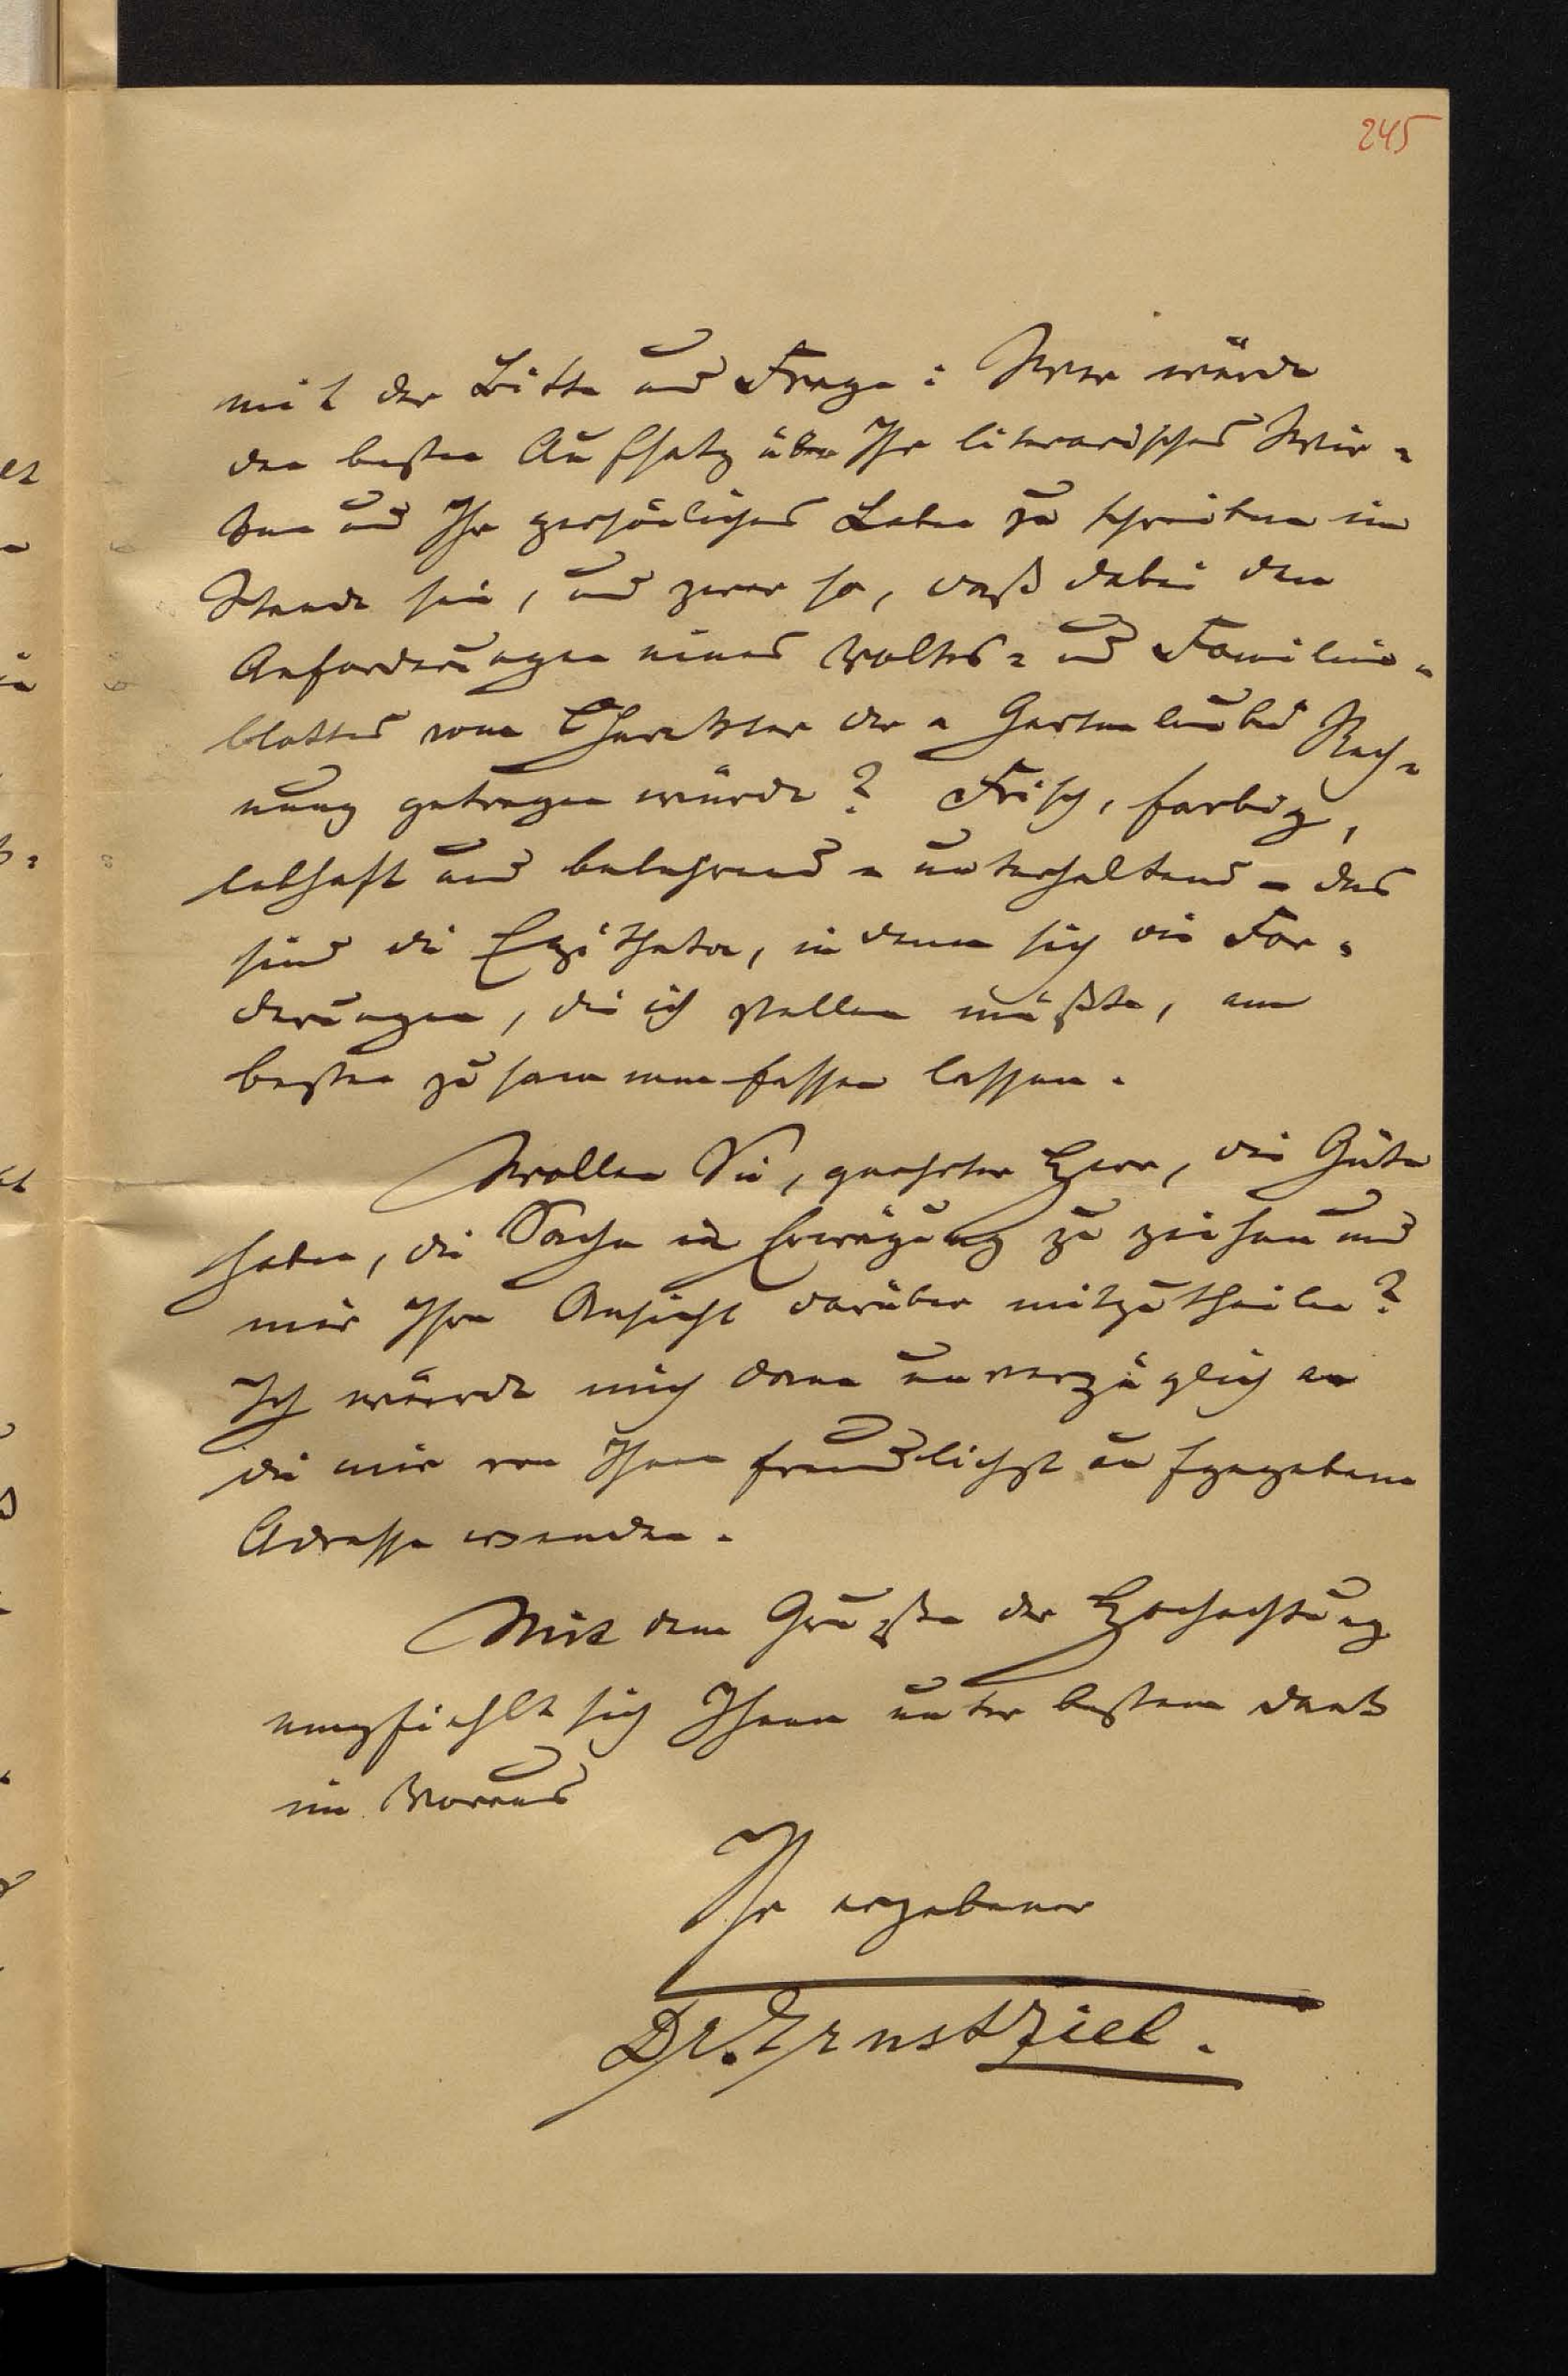 245
mit der Bitte und Frage: Wer würde
den besten Aufsatz über Ihr literarisches Wir=
ken und Ihr persönliches Leben zu schreiben im
Stande sein, und zwar so, daß dabei den
Anforderungen eines Volks= und Familien=
blattes vom Charakter der „Gartenlaube“ Rech=
nung getragen würde? Frisch, farbig,
lebhaft und belehrend = unterhaltend – das
sind die Epitheta, in denen sich die For=
derungen, die ich stellen müßte, am
besten zusammenfassen lassen.
Wollen Sie, geehrter Herr, die Güte
haben, die Sache in Erwägung zu ziehen und
mir Ihre Ansicht darüber mitzutheilen?
Ich würde mich dann unverzüglich an
die mir von Ihnen freundlichst aufgegebene
Adresse wenden.
Mit dem Gruße der Hochachtung
empfiehlt sich Ihnen unter bestem Dank
im Voraus
Ihr ergebener
Dr. Ernst Ziel.